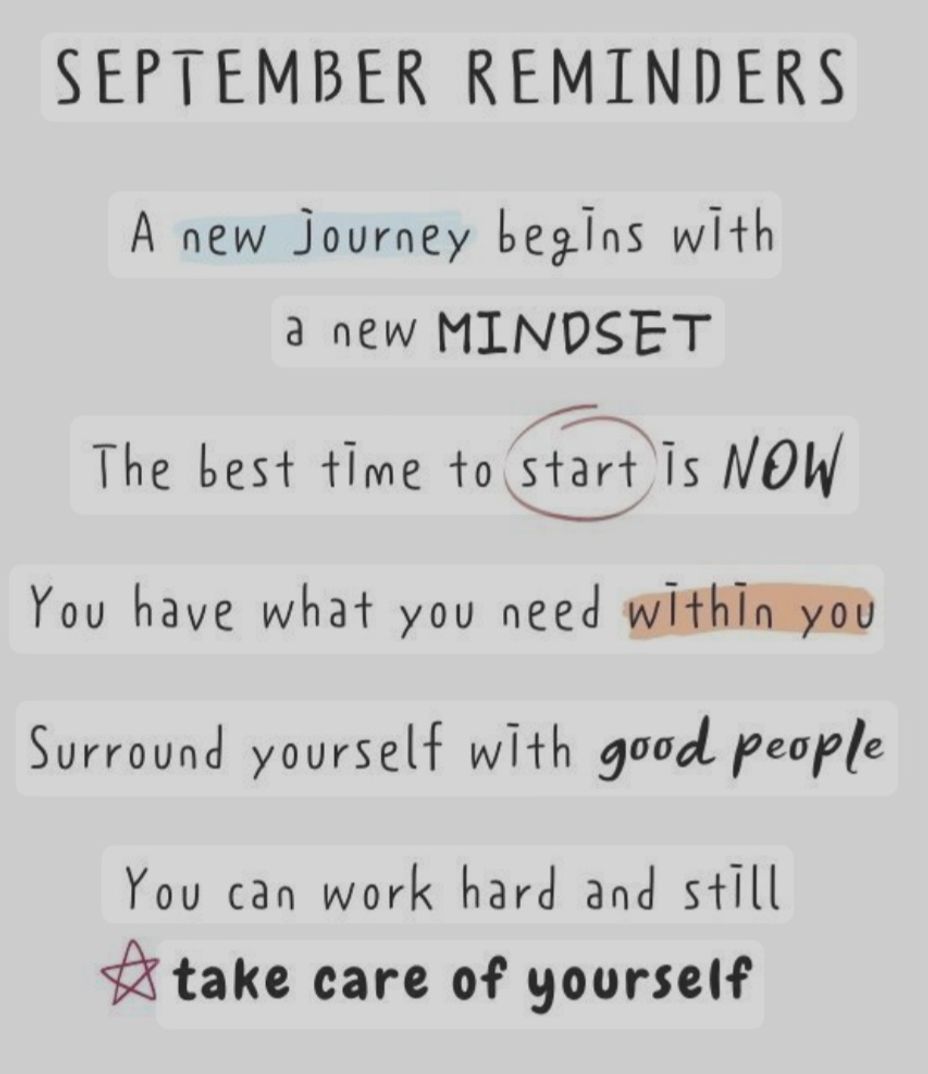 SEPTEMBER REMINDERS
A new journey begins with
a new MINDSET
The best time to start is NOW
You have what you need within you
Surround yourself with good people
You can work hard and still
take care of yourself